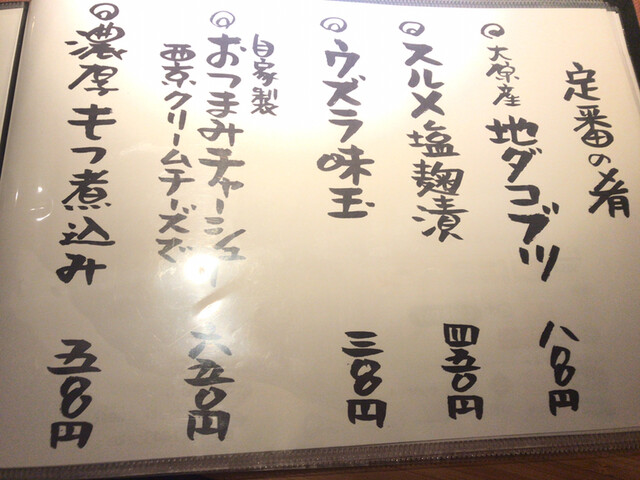 定番の肴
大原産
地ダコブツ 八〇〇円
◎スルメ塩麹漬 四五〇円
◎ウズラ味玉 三〇〇円
自家製
◎おつまみチャーシュー 六五〇円
西京クリームチーズで
◎濃厚もつ煮込み 五〇〇円